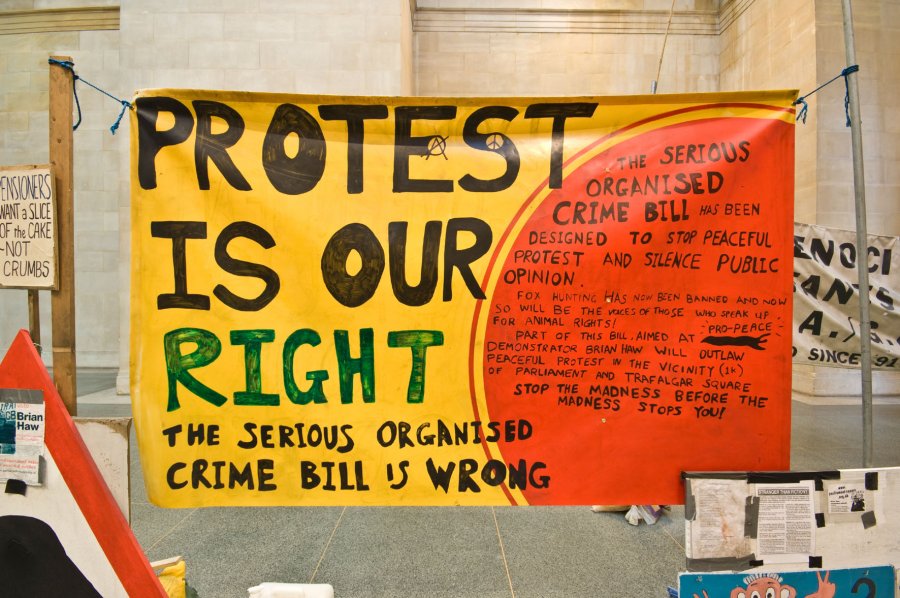 PROTEST
IS OUR
RIGHT
THE SERIOUS ORGANISED
CRIME BILL IS WRONG
THE SERIOUS
ORGANISED
CRIME BILL HAS BEEN
DESIGNED TO STOP PEACEFUL
PROTEST AND SILENCE PUBLIC
OPINION.
FOX HUNTING HAS NOW BEEN BANNED AND NOW
SO WILL BE THE VOICES OF THOSE WHO SPEAK UP
FOR ANIMAL RIGHTS!
PART OF THIS BILL, AIMED AT PRO-PEACE
DEMONSTRATOR BRIAN HAW WILL OUTLAW
PEACEFUL PROTEST IN THE VICINITY (1K)
OF PARLIAMENT AND TRAFALGAR SQUARE
STOP THE MADNESS BEFORE THE
MADNESS STOPS YOU!
PENSIONERS
WANT a SLICE
OF the CAKE
~NOT
CRUMBS
Brian
Haw
ENOCI
ANTS
A./S.
SINCE '91
STRANGER THAN FICTION
2